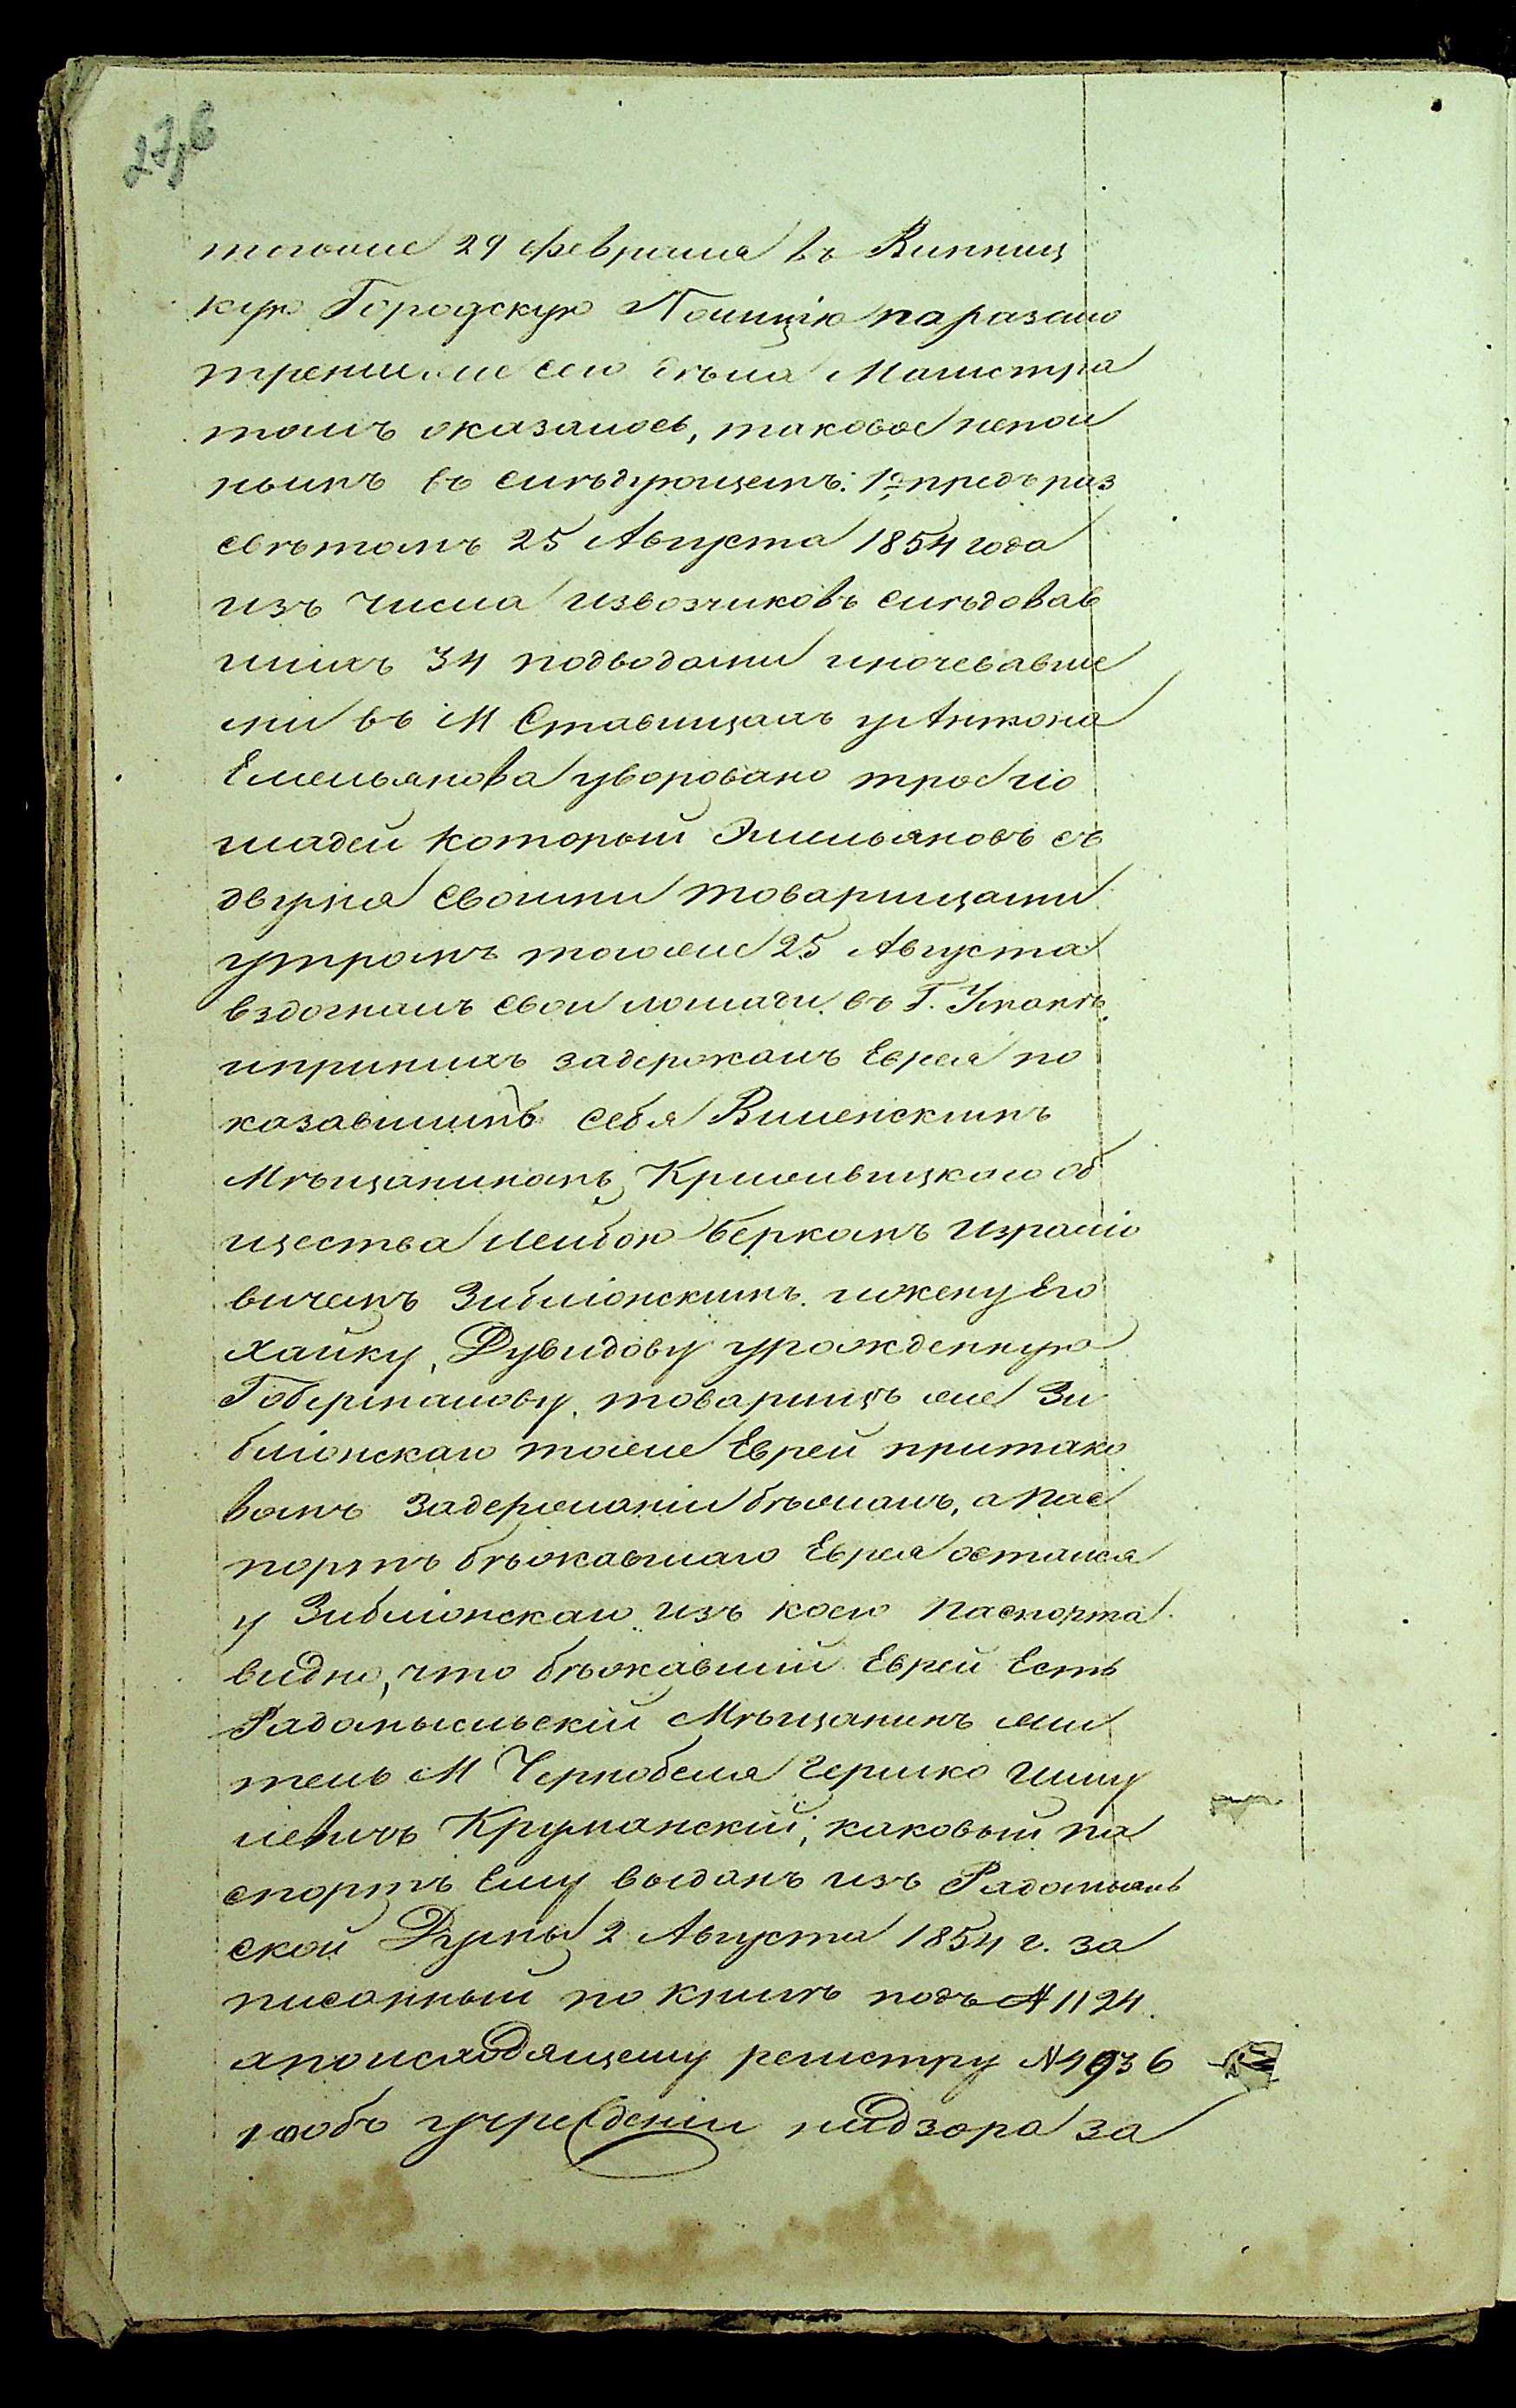 27,б
тогоже 29 февраля въ Винниц
кую Городскую Полицію поразсмо
трении же сего дѣла Магистра
томъ оказалось, таковое непол
нымъ въ слѣдующемъ: 1е предъ раз
свѣтомъ 25 Августа 1854 года
изъ числа извозчиковъ слѣдовав
шихъ 34 подводами иночевавше
ми въ М Ставищахъ у Антона
Емельянова уворовано трое ло
шадей который Эмельяновъ съ
двумя своими товарищами
утромъ тогоже 25 Августа
вздогналъ свои лошади въ Г. Уманѣ
ипринихъ задержалъ Еврея по
казавшимъ себя Виленскимъ
Мѣщаниномъ, Кришивицкого об
щества Лейбою Беркомъ Израило
вичемъ Зиблионскимъ ижену Его
Хайку, Дувидову урожденную
Гоберманову, товарищъ же Зи
блионскаго тоже Еврей притако
вомъ Задержаніи бѣжалъ, а пас
портъ бѣжавшаго Еврея остался
у Зиблионскаго изъ коего паспорта
видно, что бѣжавшій Еврей Есть
Радомысльскій Мѣщанинъ жи
тель М Чернобеля Гершко Шму
левичъ Круманскій, каковый па
спортъ Ему выданъ изъ Радомысль
ской Думы 2 Августа 1854 г. за
писанный по книгѣ подъ № 1124
апоисходящему регистру № 4936
обь учреждении надзора за